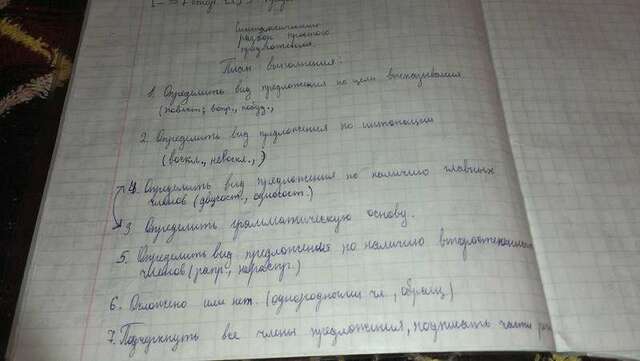 Синтаксический
разбор простого
предложения.
План выполнения:
1. Определить вид предложения по цели высказывания
(повест., вопр., побуд.,
2. Определить вид предложения по интонации
(воскл., невоскл.,)
4. Определить вид предложения по наличию главных
членов (двусост., односост.)
3 Определить грамматическую основу.
5. Определить вид предложения по наличию второстепенных
членов (распр., нераспр.)
6. Осложнено или нет. (однородностью чл., обращ)
7. Подчеркнуть все члены предложения, подписать части